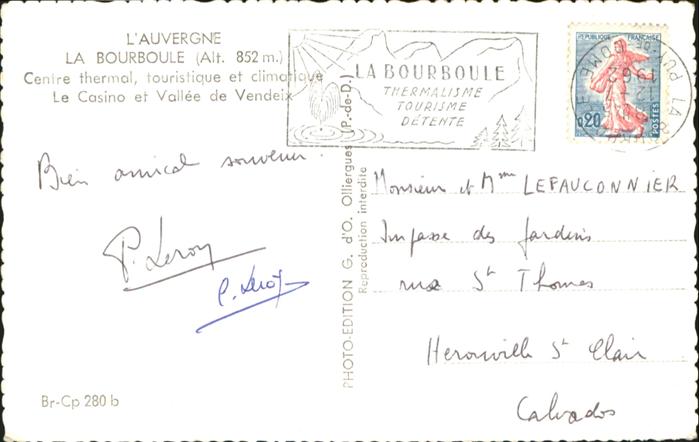 L'AUVERGNE
LA BOURBOULE (Alt. 852 m.)
Centre thermal, touristique et climatique
Le Casino et Vallée de Vendeix
LA BOURBOULE
THERMALISME
TOURISME
DÉTENTE
REPUBLIQUE FRANÇAISE
0,20
POSTES
LA
PUY-DE-DOME
1962
Bien amical souvenir.
P. Leroy
C. Leroy
PHOTO-EDITION G. d'O. Olliergues (P.-de-D.)
Reproduction interdite
Monsieur et Mme LEFAUCONNIER
Impasse des Jardins
rue St Thomas
Herouville St Clair
Calvados
Br-Cp 280 b